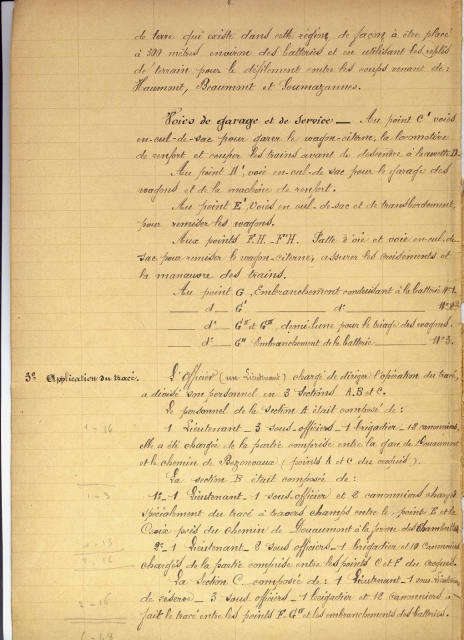 de terre qui existe dans cette région, de façon à être placé
à 500 mètres environ des batteries et en utilisant les replis
de terrain pour le défilement contre les coups venant de:
Haumont, Beaumont et Loumazannes.
Voies de garage et de service — Au point C' voies
en-cul-de-sac pour garer le wagon-citerne, la locomotive
de renfort et couper les trains avant de descendre à
Au point D', voie en cul-de-sac pour le garage des
wagons et de la machine de renfort.
Au point E', voies en cul-de-sac et de transbordement,
pour remiser les wagons.
Aux points F.H. - F'H. Patte d'oie et voie en-cul-de-
sac pour remiser le wagon-citerne, assurer les croisements et
la manœuvre des trains.
Au point G, Embranchement conduisant à la batterie N°1.
d° G' d° N°2
d° G" et G''', demi-lune pour le triage des wagons.
d° Embranchement de la batterie N°3.
3° Application du tracé.
L'Officier (un Lieutenant) chargé de diriger l'opération du tracé,
a divisé son personnel en 3 Sections A, B et C.
Le personnel de la Section A était composé de:
1 Lieutenant - 3 sous-officiers - 1 brigadier - 12 canonniers.
Elle a été chargée de la partie comprise entre la gare de Douaumont
et le chemin de Bezonvaux (points A et C du croquis).
La section B était composée de:
1° - 1 Lieutenant - 1 sous-officier et 2 canonniers chargés
spécialement du tracé à travers champs entre le point E et la
Croix près du chemin de Douaumont à la ferme des Chambrettes
2° - 1 Lieutenant - 2 sous officiers - 1 brigadier et 10 canonniers
chargés de la partie comprise entre les points C et F du croquis.
La Section C composée de: 1 Lieutenant - 1 sous-Lieutenant
de réserve - 3 sous-officiers - 1 brigadier et 12 canonniers a
fait le tracé entre les points F. et les embranchements des batteries.
1 - 16
1 - 3
2 - 16